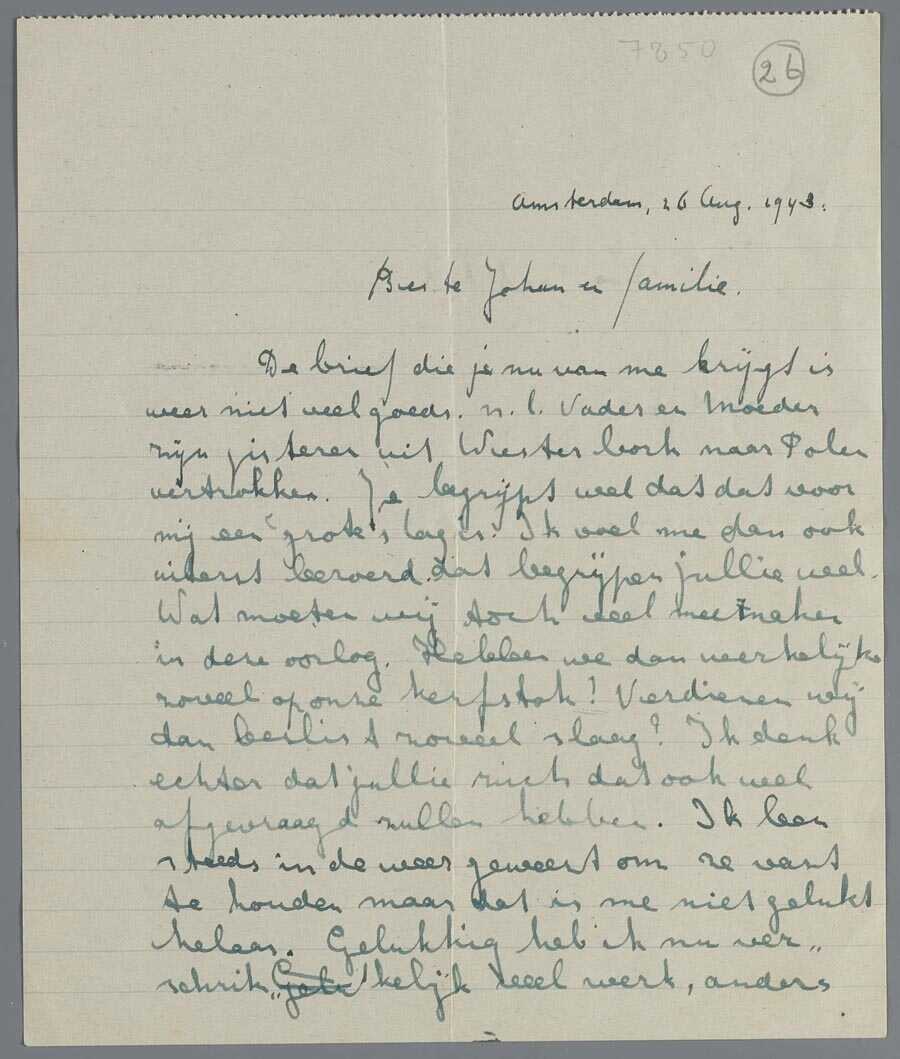 7850
26
Amsterdam, 26 Aug. 1943.
Beste Johan en familie.
De brief die je nu van me krijgt is
weer niet veel goeds. n.l. Vader en Moeder
zijn gisteren uit Westerbork naar Polen
vertrokken. Je begrijpt wel dat dat voor
mij een grote slag is. Ik voel me dan ook
uiterst beroerd. dat begrijpen jullie wel.
Wat moeten wij toch veel meemaken
in deze oorlog. Hebben we dan werkelijk
zoveel op onze kerfstok! Verdienen wij
dan beslist zoveel slaag? Ik denk
echter dat jullie zich dat ook wel
afgevraagd zullen hebben. Ik ben
steeds in de weer geweest om ze vast
te houden maar dat is me niet gelukt
helaas. Gelukkig heb ik nu ver„
schrik„ kelijk veel werk, anders